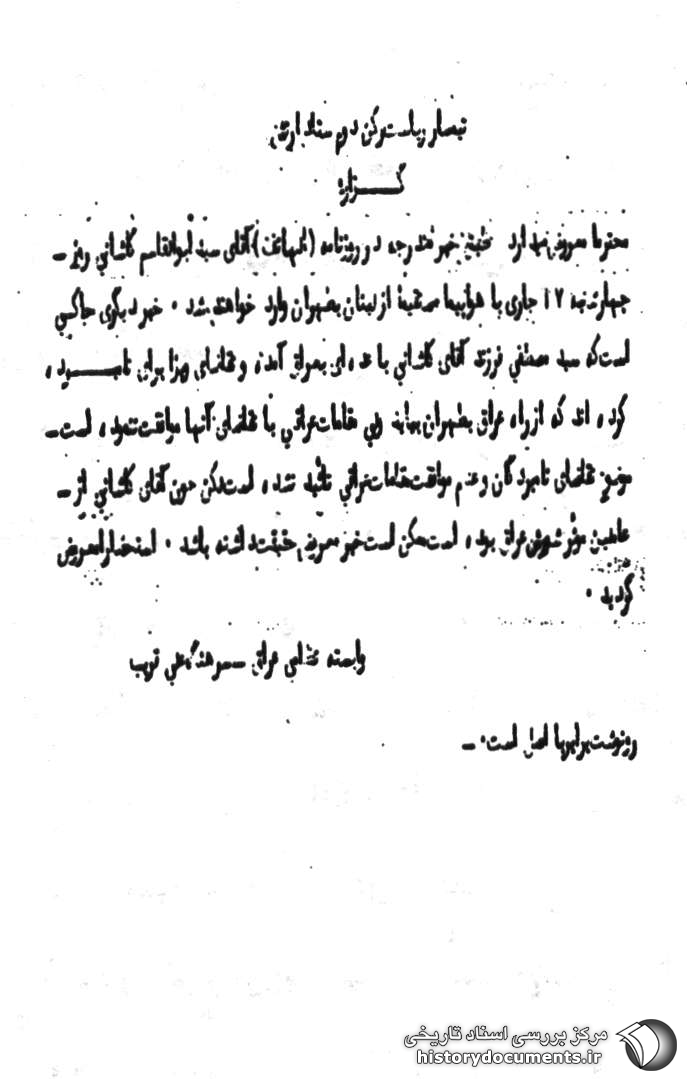 تیمسار ریاست رکن دوم ستاد ارتش
گــــزارش
محترما معروض میدارد خبر مندرجه در روزنامه ( ) آقای سید ابوالقاسم کاشانی روز –
چهارشنبه ۱۷ جاری با هواپیما مستقیما از لبنان بطهران وارد خواهند شد ۰ خبر دیگری حاکی
است که سید مصطفی فرزند آقای کاشانی با عده ای بعراق آمده و تقاضای ویزا برای
کرده اند که از راه عراق بطهران بیایند ولی مقامات عراقی با تقاضای آنها موافقت ننموده است –
موضوع تقاضای نامبردگان و عدم موافقت مقامات عراقی تائید نشده است لکن چون آقای کاشانی از –
عاملین موثر شورش عراق بوده است ممکن است خبر معروضی حقیقت داشته باشد ۰ استحضارا معروض
گردید ۰
وابسته نظامی عراق – سرهنگ علی
رونوشت برابر با اصل است۰ –
مرکز بررسی اسناد تاریخی
historydocuments.ir